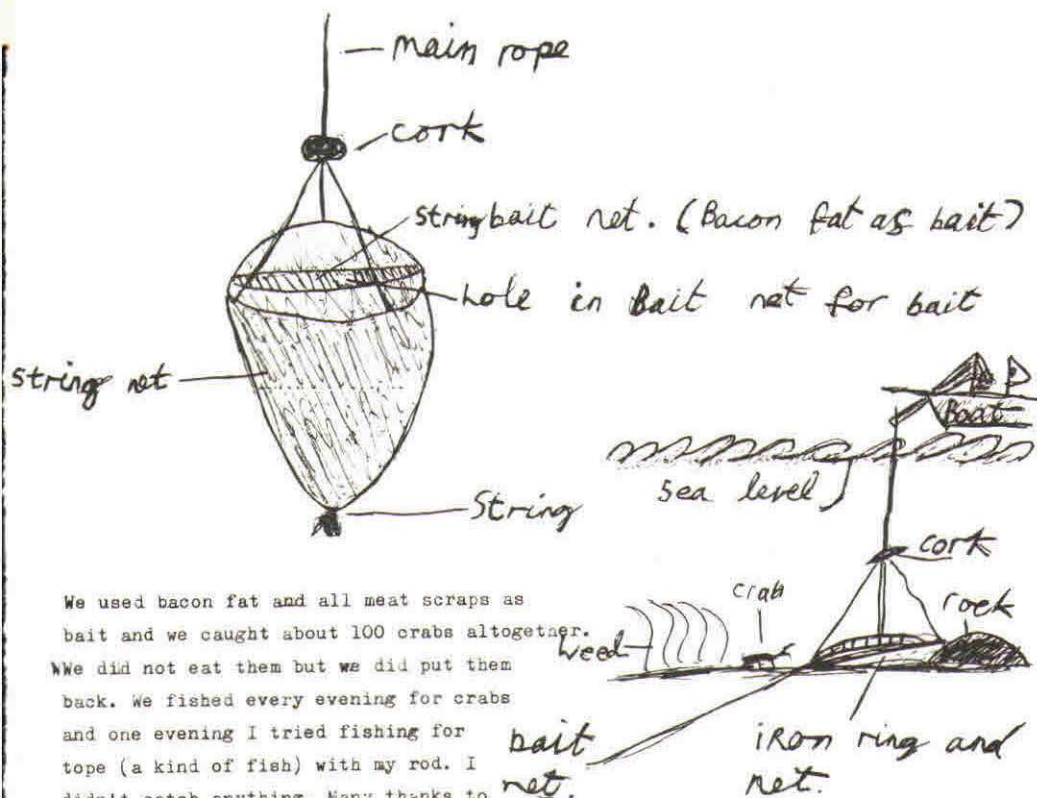 main rope
cork
string bait net. (Bacon fat as bait)
hole in Bait net for bait
string net
String
Boat
sea level
cork
crab
rock
weed
bait
net.
iRon ring and
net.
We used bacon fat and all meat scraps as
bait and we caught about 100 crabs altogether.
WWe did not eat them but we did put them
back. We fished every evening for crabs
and one evening I tried fishing for
tope (a kind of fish) with my rod. I
didn't catch anything. Many thanks to